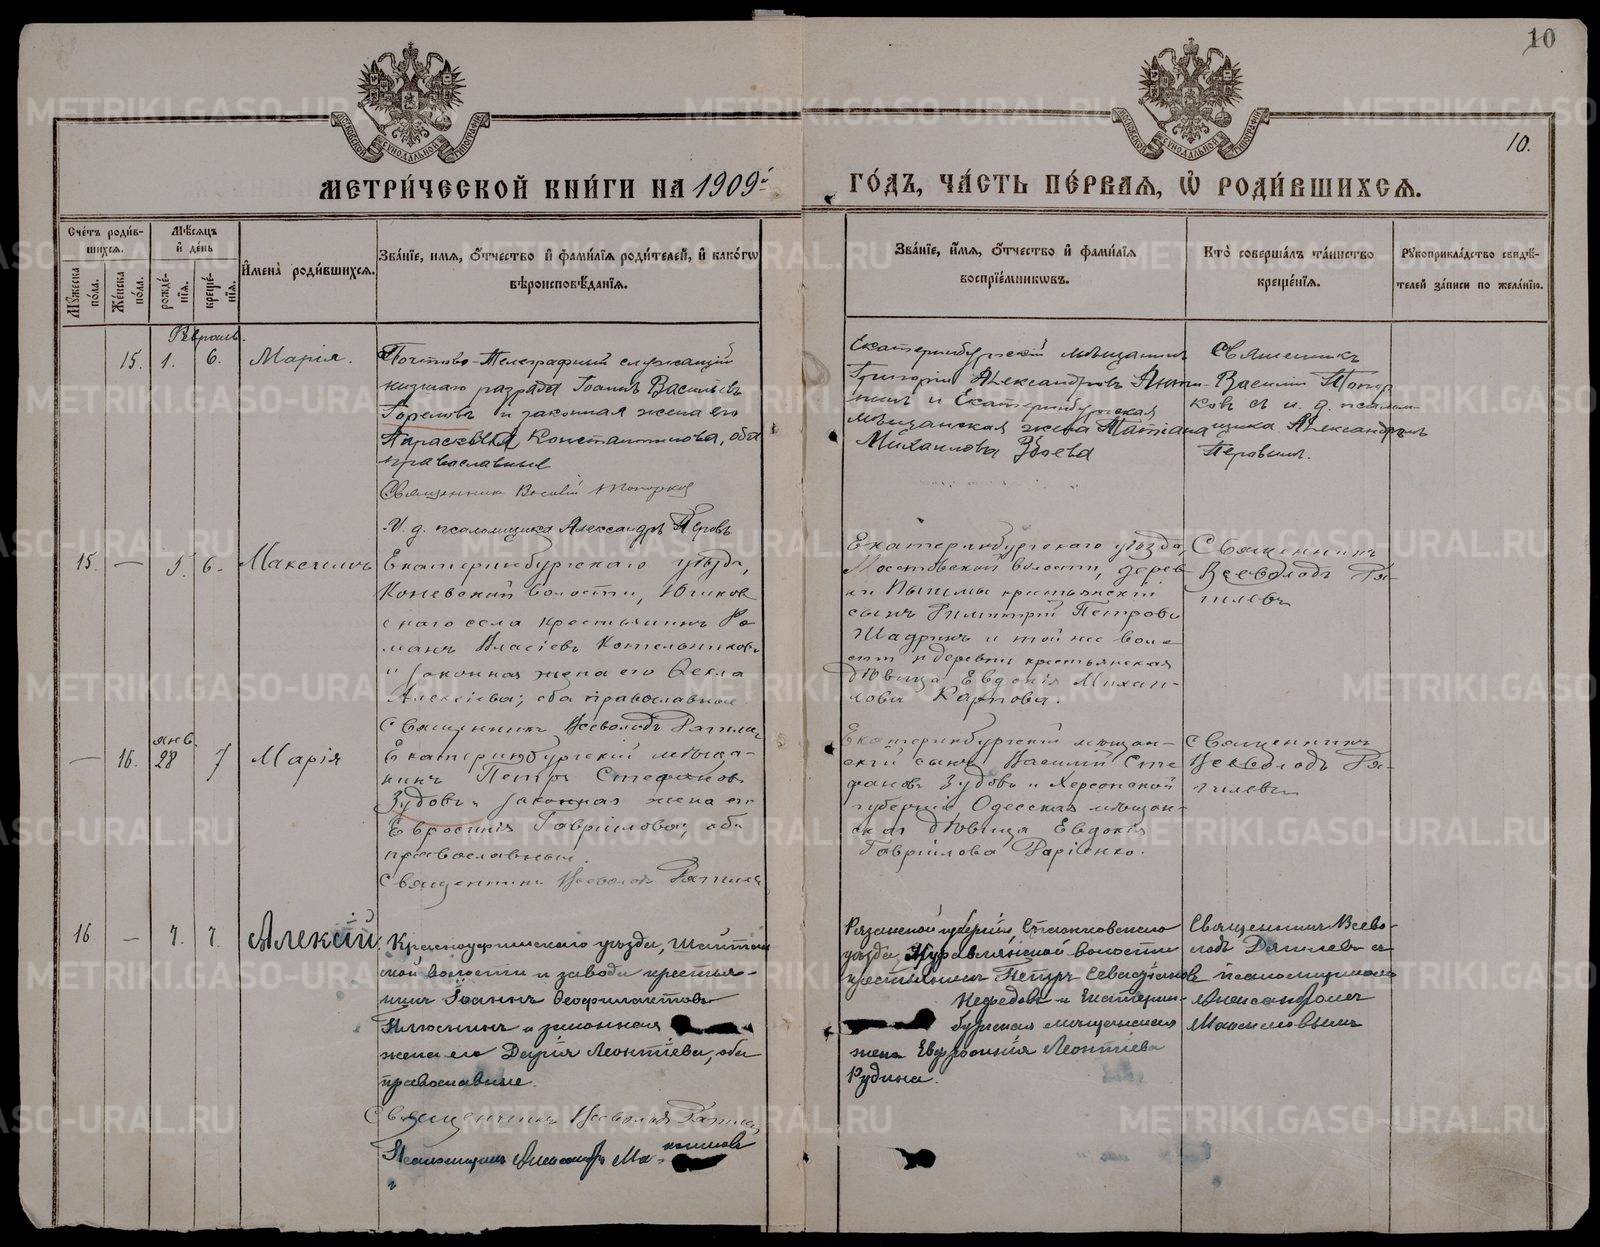 10
10.
МЕТРИ́ЧЕСКОЙ КНИ́ГИ НА 1909й
ГО́ДЪ, ЧА́СТЬ ПЕ́РВАЯ, Ѡ РОДИ́ВШИХСЯ.
Сче́тъ роди́в-
шихся.
Мꙋ́жеска по́ла.
Же́нска по́ла.
Мѣ́сяцъ
и҆ де́нь
рожде́-
нїя.
креще́-
нїя.
И҆мена̀ роди́вшихся.
Зва́нїе, имя, ѻ҆́тчество и҆ фами́лїя роди́телей, и҆ како́гѡ
вѣроисповѣ́данїя.
Зва́нїе, и҆́мя, ѻ҆́тчество и҆ фами́лїя
воспрїе́мникѡвъ.
Кто̀ соверша́лъ та́инство
креще́нїя.
Рꙋкоприкла́дство свидѣ́-
телей за́писи по жела́нїю.
Февраль.
15. 1. 6. Марія.
Почтово-Телеграфный служащій
низшаго разряда Іоаннъ Васильевъ
и законная жена его
Параскева Константинова, оба
православные
Священникъ Василій Топорков
И. д. псаломщика Александръ Перовъ
Екатеринбургскій мѣщанинъ
Григорій Александровъ
и Екатеринбургская
мѣщанская жена Татіана
Михаилова
Священникъ
Василій Топор
ковъ съ и. д. псалом-
щика Александромъ
Перовымъ.
15. — 5. 6. Максимъ
Екатеринбургскаго уѣзда,
Коневской волости,
скаго села крестьянинъ Ро-
манъ Власіевъ Котельниковъ
и законная жена его Ѳекла
Алексіева; оба православные.
Священникъ Всеволодъ
Екатеринбургскаго уѣзда,
волости, дерев
ни Пышмы крестьянскій
сынъ Димитрій Петровъ
Шадринъ и той же воло
сти и деревни крестьянская
дѣвица Евдокія Михаи-
лова Карпова.
Священникъ
Всеволодъ
— 16. янв. 28 7 Марія
Екатеринбургскій мѣща-
нинъ Петръ Стефановъ
Зудовъ и законная жена его
Евросинія Гавріилова; оба
православные.
Священникъ Всеволодъ
Екатеринбургскій мѣщан-
скій сынъ Василій Сте
фановъ Зудовъ и Херсонской
губерніи Одесская мѣщан-
ская дѣвица Евдокія
Гавріилова
Священникъ
Всеволодъ
16 — 7. 7. Алексій
Красноуфимскаго уѣзда, Шайтан
ской волости и завода крестья-
нинъ Іоаннъ Ѳеофилактовъ
и законная
жена его Дарія Леонтіева, оба
православные.
Священникъ Всеволодъ
Псаломщикъ Александръ Ма-
Рязанской губерніи,
уѣзда, волости
крестьянинъ Петръ Севастіановъ
Нефедовъ и Екатерин-
бургская мѣщанская
жена Евфросинія Леонтіева
Рудина.
Священникъ Всево-
лодъ съ
псаломщикомъ
Александромъ
METRIKI.GASO-URAL.RU